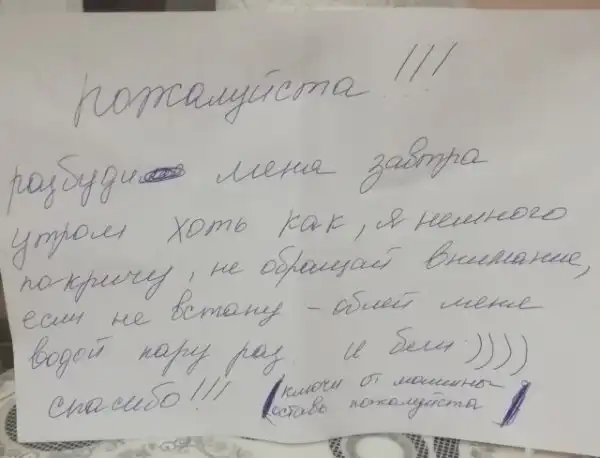 пожалуйста !!!
разбуди меня завтра
утром хоть как, я немного
покричу, не обращай внимание,
если не встану - облей меня
водой пару раз и бей ))))
спасибо !!! (ключи от машины
оставь пожалуйста)